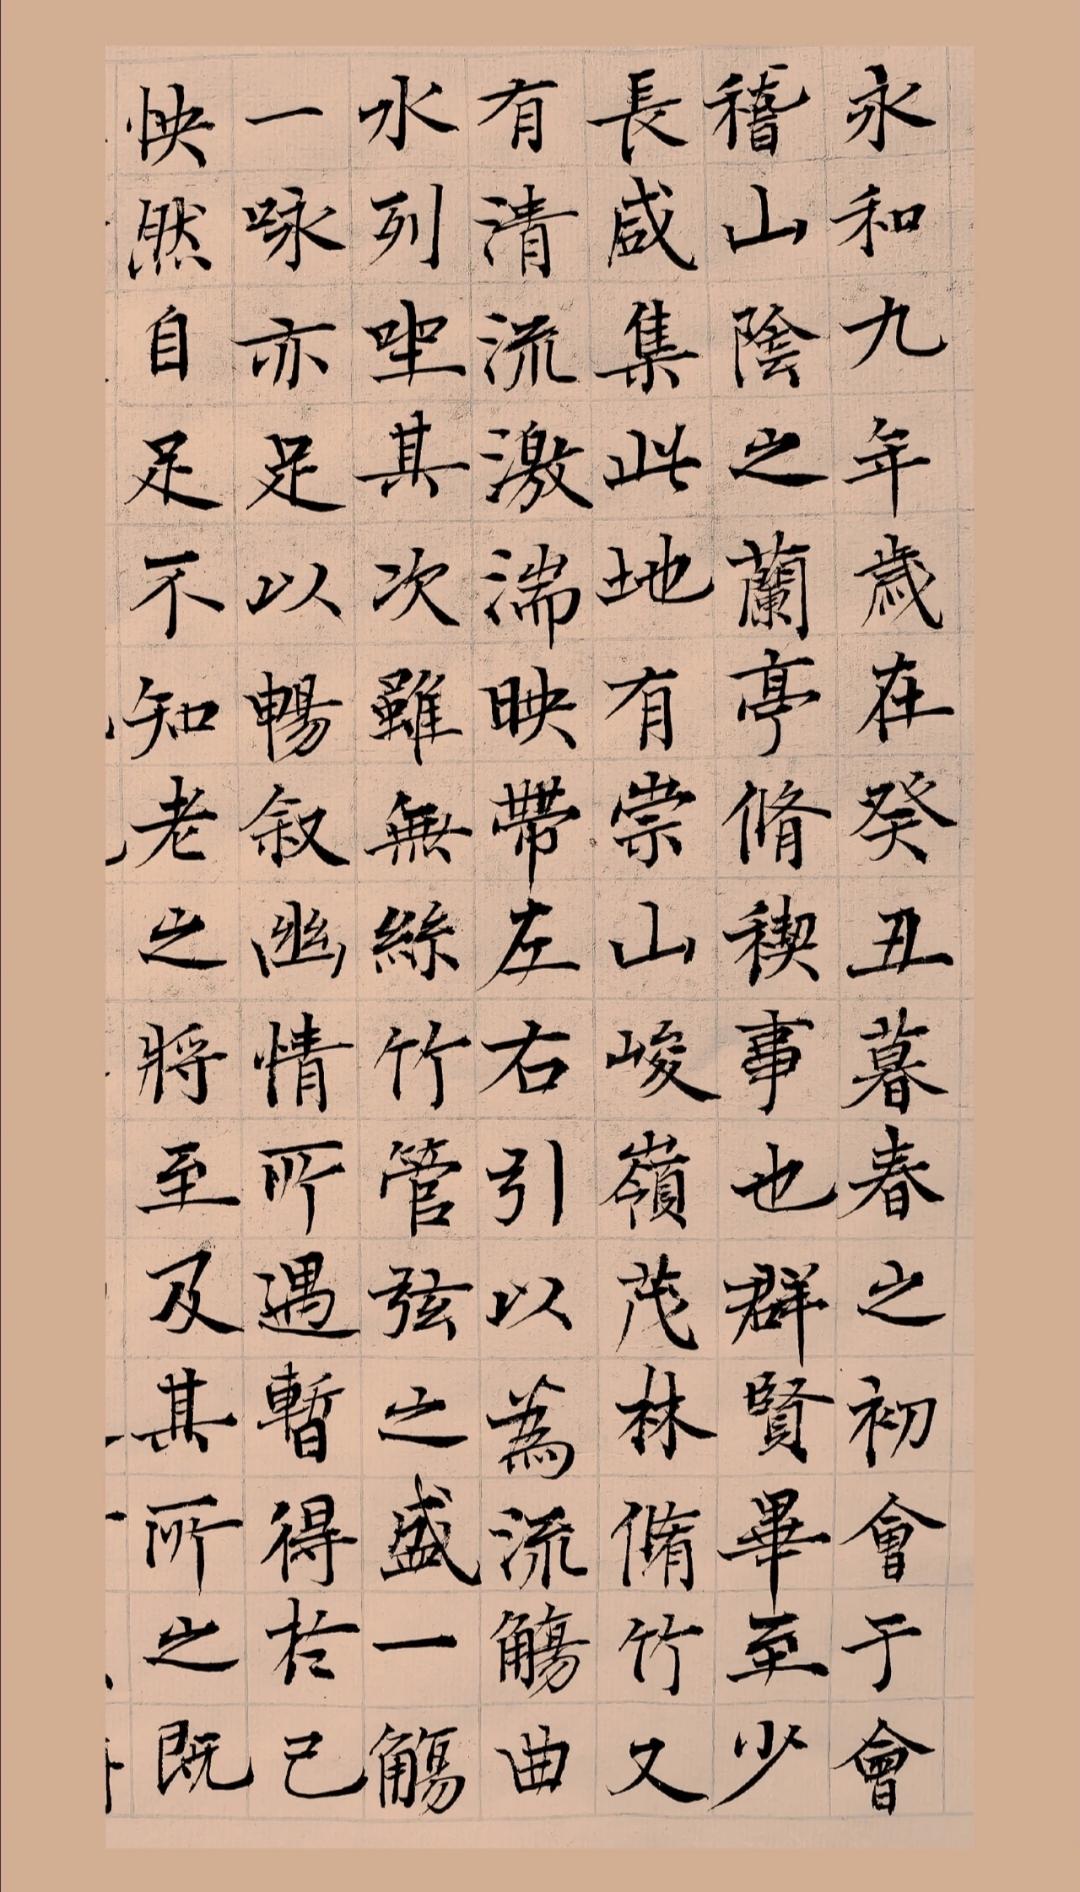 永和九年歲在癸丑暮春之初會于會
稽山陰之蘭亭脩稧事也群賢畢至少
長咸集此地有崇山峻嶺茂林脩竹又
有清流激湍映帶左右引以為流觴曲
水列坐其次雖無絲竹管弦之盛一觴
一詠亦足以暢敘幽情所遇暫得於己
怏然自足不知老之將至及其所之既